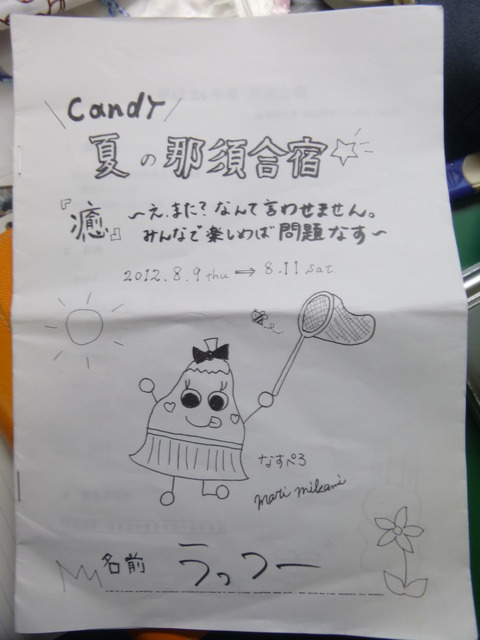 Candy
夏の那須合宿
『癒』 ～え、また?なんて言わせません。
みんなで楽しめば問題なす～
2012.8.9 thu ⇒ 8.11 sat
なすぺろ
mari mikami
名前 らっつー